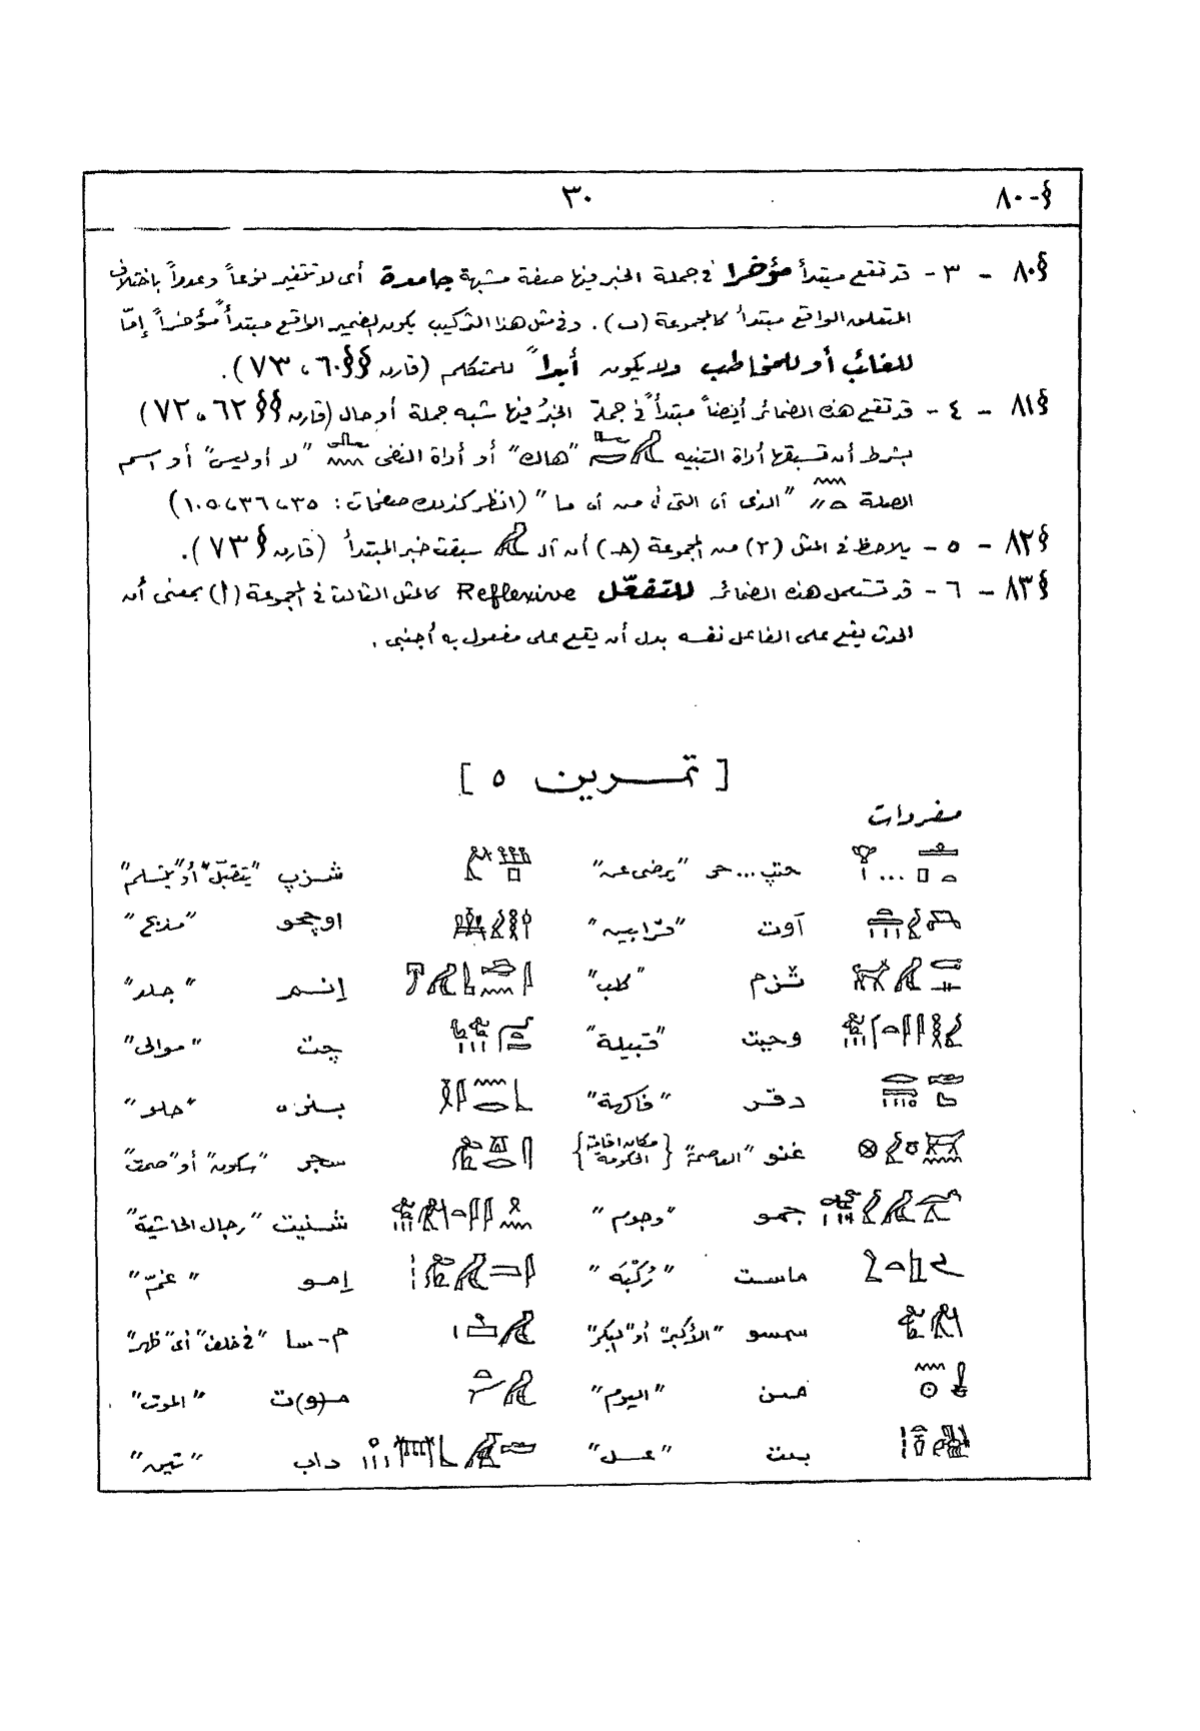 §-٨٠
٣٠
§٨٠ - ٣ - قد تقع مبتدأ مؤخرا فى جملة الخبر فيها صفة مشبهة جامدة أى لا تتغير نوعاً وعدداً باختلاف
المتعلق الواقع مبتدأ كالمجموعة (ب). وفى مثل هذا التركيب يكون الضمير الواقع مبتدأ مؤخراً إمّا
للغائب أو للمخاطب ولا يكون أبداً للمتكلم (قارن §§٦٠، ٧٣).
§٨١ - ٤ - قد تقع هذه الضمائر أيضاً مبتدأ فى جملة الخبرُ فيها شبه جملة أو حال (قارن §§ ٦٢، ٧٢)
بشرط أن تسبقها أداة التنبيه "هاك" أو أداة النفى "لا أو ليس" أو اسم
الصلة "الذى أى التى أى من أى ما" (انظر كذلك صفحات: ٣٥، ٣٦، ١٠٥)
§٨٢ - ٥ - يلاحظ فى المثل (٢) من المجموعة (حـ) أن الـ سبقت خبر المبتدأ (قارن § ٧٣).
§٨٣ - ٦ - قد تستعمل هذه الضمائر للتفعّل Reflexive كالمثل الثالث فى المجموعة (أ) بمعنى أن
الحدث يقع على الفاعل نفسه بدل أن يقع على مفعول به أجنبى.
[ تمـرين ٥ ]
مفردات
حتپ ... حر "يرضى عن" شزپ "يتقبّل" أو "يتسلم"
آوت "قرابين" اوچحو "مذبح"
ثزم "كلب" إنسم "جلد"
وحيت "قبيلة" چت "موالى"
دقر "فاكهة" بنر "حلو"
غنو "العاصمة" {مكان اقامة الحكومة} سجر "سكون" أو "صمت"
جمو "وجوم" شنيت "رجال الحاشية"
ماست "رُكْبَة" إمو "غمّ"
سمسو "الأكبر" أو "البكر" م-سا "فى خلف" أى "ظهر"
من "اليوم" م(و)ت "الموت"
بت "عسل" داب "تين"